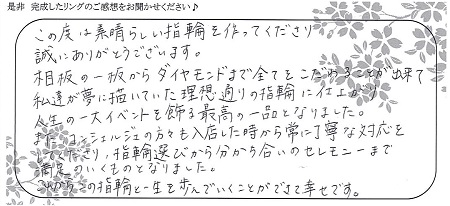 是非 完成したリングのご感想をお聞かせください♪
この度は素晴らしい指輪を作ってくださり
誠にありがとうございます。
相板の一板からダイヤモンドまで全てをこだわることが出来て
私達が夢に描いていた理想通りの指輪に仕上がり
人生の一大イベントを飾る最高の一品となりました。
また コンシェルジュの方々も入店した時から常に丁寧な対応を
してくださり、指輪選びから分かち合いのセレモニーまで
満足のいくものとなりました。
これからこの指輪と一生を歩んでいくことができて幸せです。